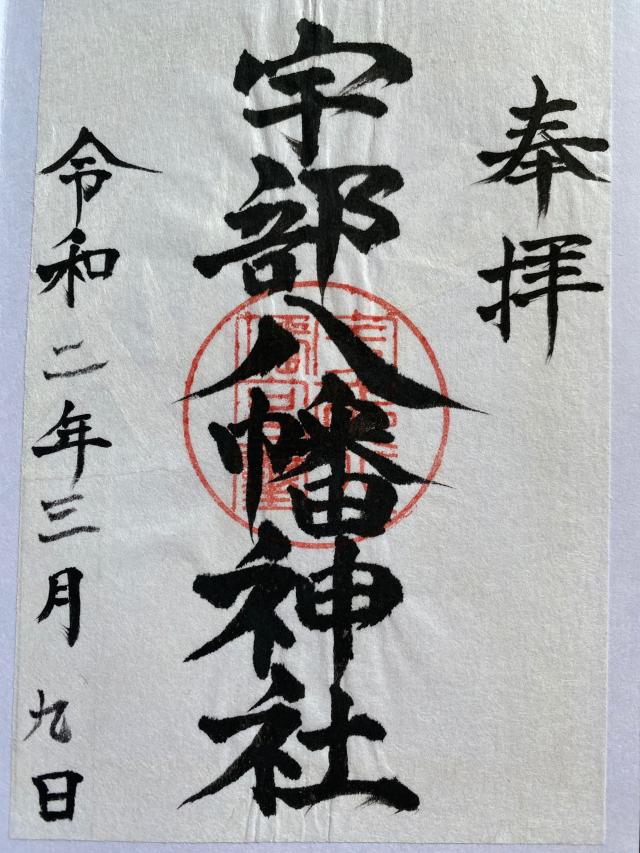 奉拝
宇部八幡神社
令和二年三月九日